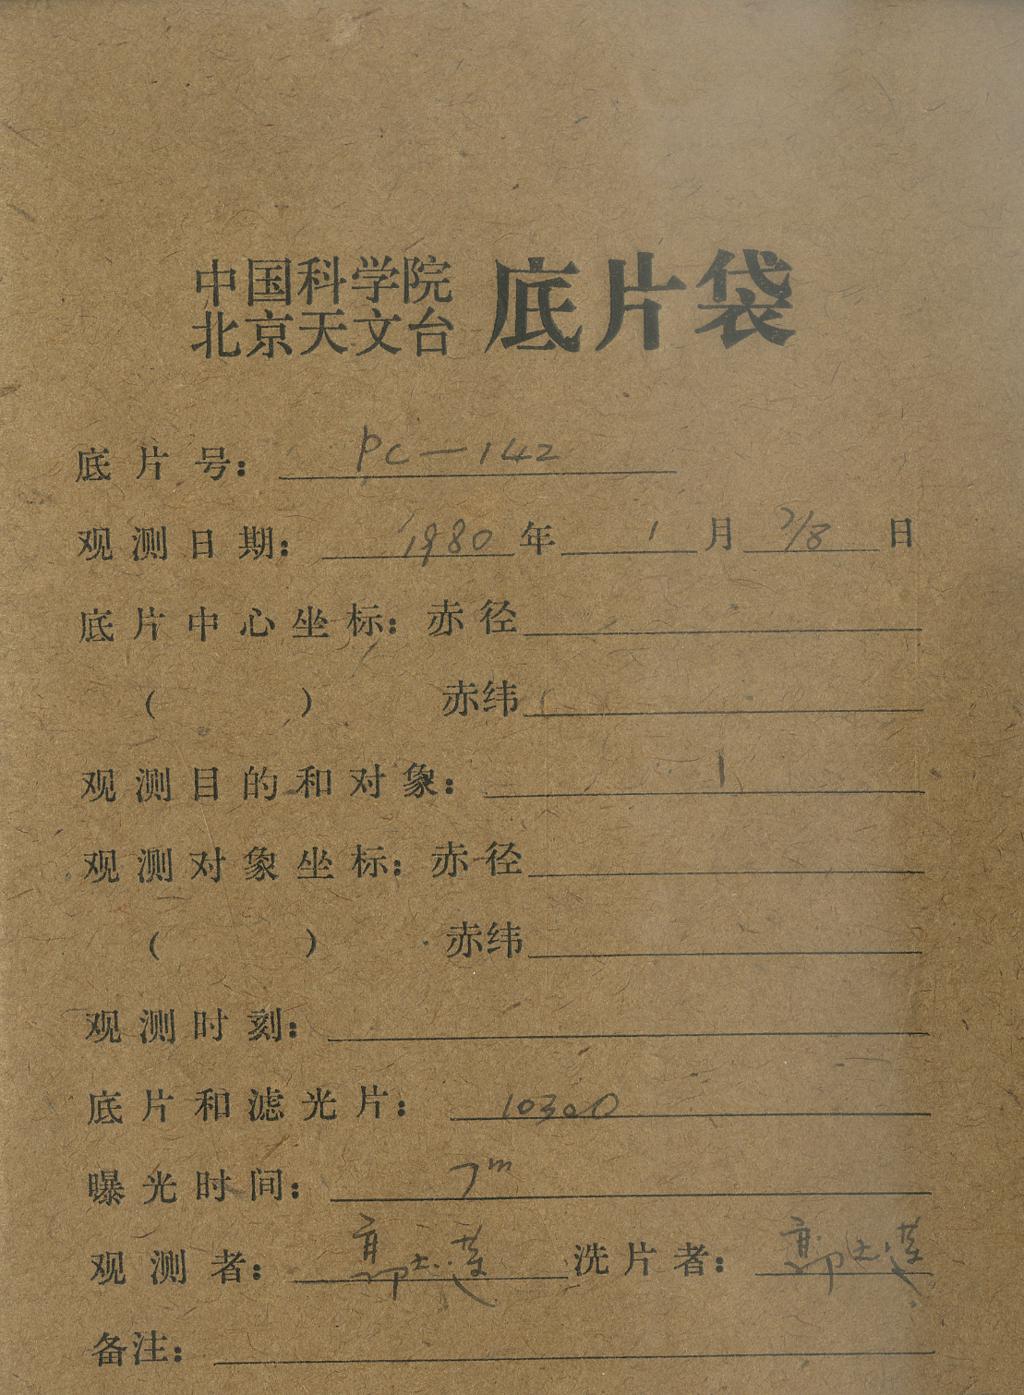 中国科学院
北京天文台 底片袋
底片号: PC—142
观测日期: 1980年 1月 7/8日
底片中心坐标: 赤径
( ) 赤纬
观测目的和对象:
观测对象坐标: 赤径
( ) 赤纬
观测时刻:
底片和滤光片: 103aO
曝光时间: 7m
观测者: 洗片者:
备注: